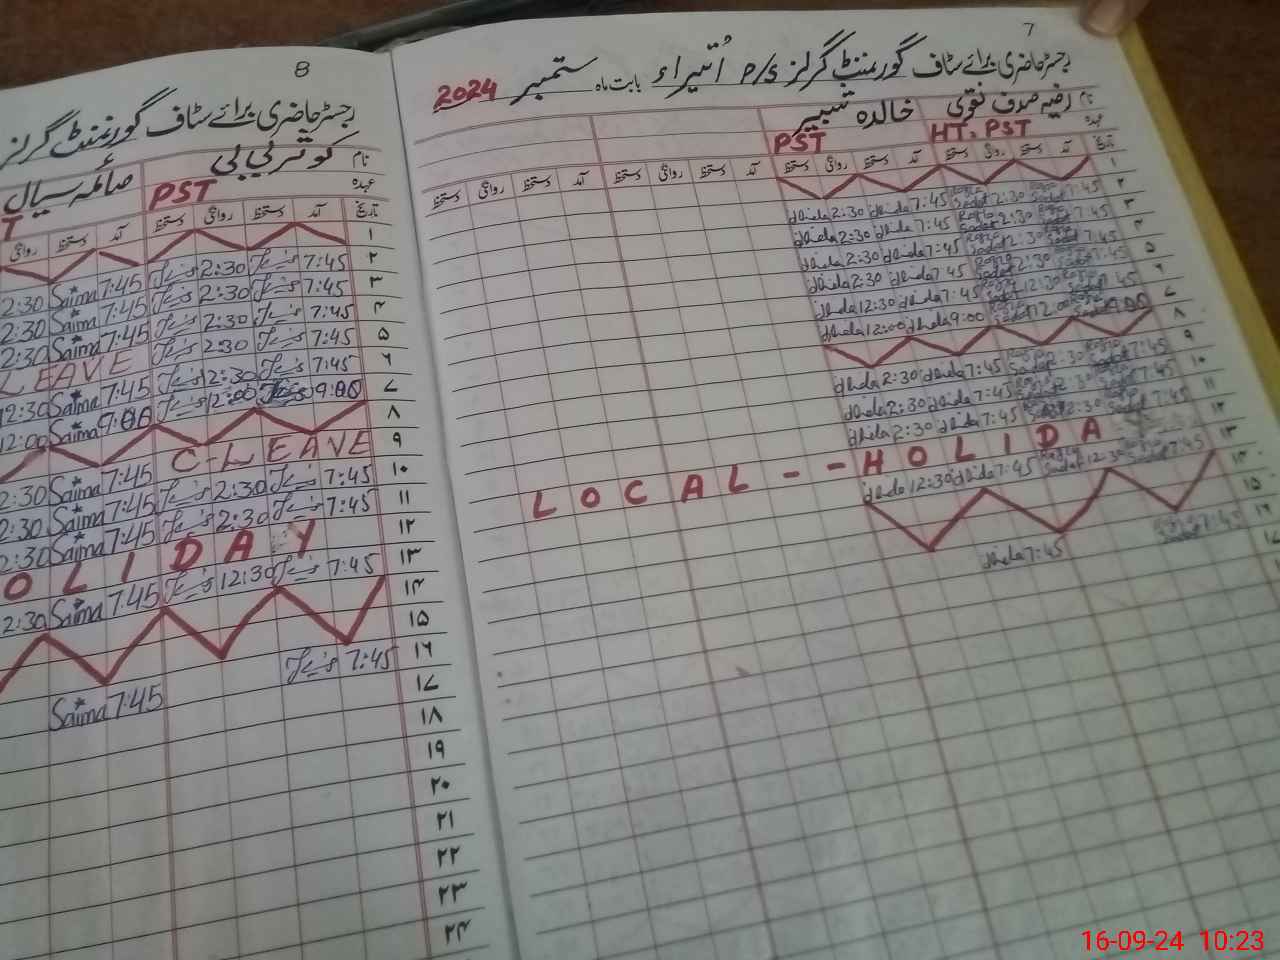 7
رجسٹر حاضری برائے سٹاف گورنمنٹ گرلز P/S اُتیراء بابت ماہ ستمبر 2024
نام رضیہ صدف نقوی خالدہ شبیر
عہدہ HT. PST PST
تاریخ آمد دستخط روانگی دستخط آمد دستخط روانگی دستخط آمد دستخط روانگی دستخط آمد دستخط روانگی دستخط
۱
۲ 7:45 2:30 7:45 2:30
۳ 7:45 2:30 7:45 2:30
۴ 7:45 12:30 7:45 2:30
۵ 7:45 2:30 7:45 2:30
۶ 7:45 12:30 7:45 12:30
۷ 9:00 12:00 9:00 12:00
۸
۹ 7:45 2:30 7:45 2:30
۱۰ 7:45 2:30 7:45 2:30
۱۱ 7:45 2:30 7:45 2:30
۱۲ LOCAL -- HOLIDA
۱۳ 7:45 12:30 7:45 12:30
۱۴
۱۵
۱۶ 7:45 7:45
۱۷
8
رجسٹر حاضری برائے سٹاف گورنمنٹ گرلز
نام کوثر بی بی صائمہ سیال
عہدہ PST T
تاریخ آمد دستخط روانگی دستخط آمد دستخط روانگی
۱
۲ 7:45 2:30 7:45 Saima 2:30
۳ 7:45 2:30 7:45 Saima 2:30
۴ 7:45 2:30 7:45 Saima 2:30
۵ 7:45 2:30 LEAVE
۶ 7:45 2:30 7:45 Saima 12:30
۷ 9:00 12:00 9:00 Saima 12:00
۸
۹ C-LEAVE 7:45 Saima 2:30
۱۰ 7:45 2:30 7:45 Saima 2:30
11 7:45 2:30 7:45 Saima 2:30
۱۲ OLIDAY
۱۳ 7:45 12:30 7:45 Saima 2:30
۱۴
۱۵
۱۶ 7:45 7:45 Saima
۱۷
۱۸
۱۹
۲۰
۲۱
۲۲
۲۳
۲۴
16-09-24 10:23